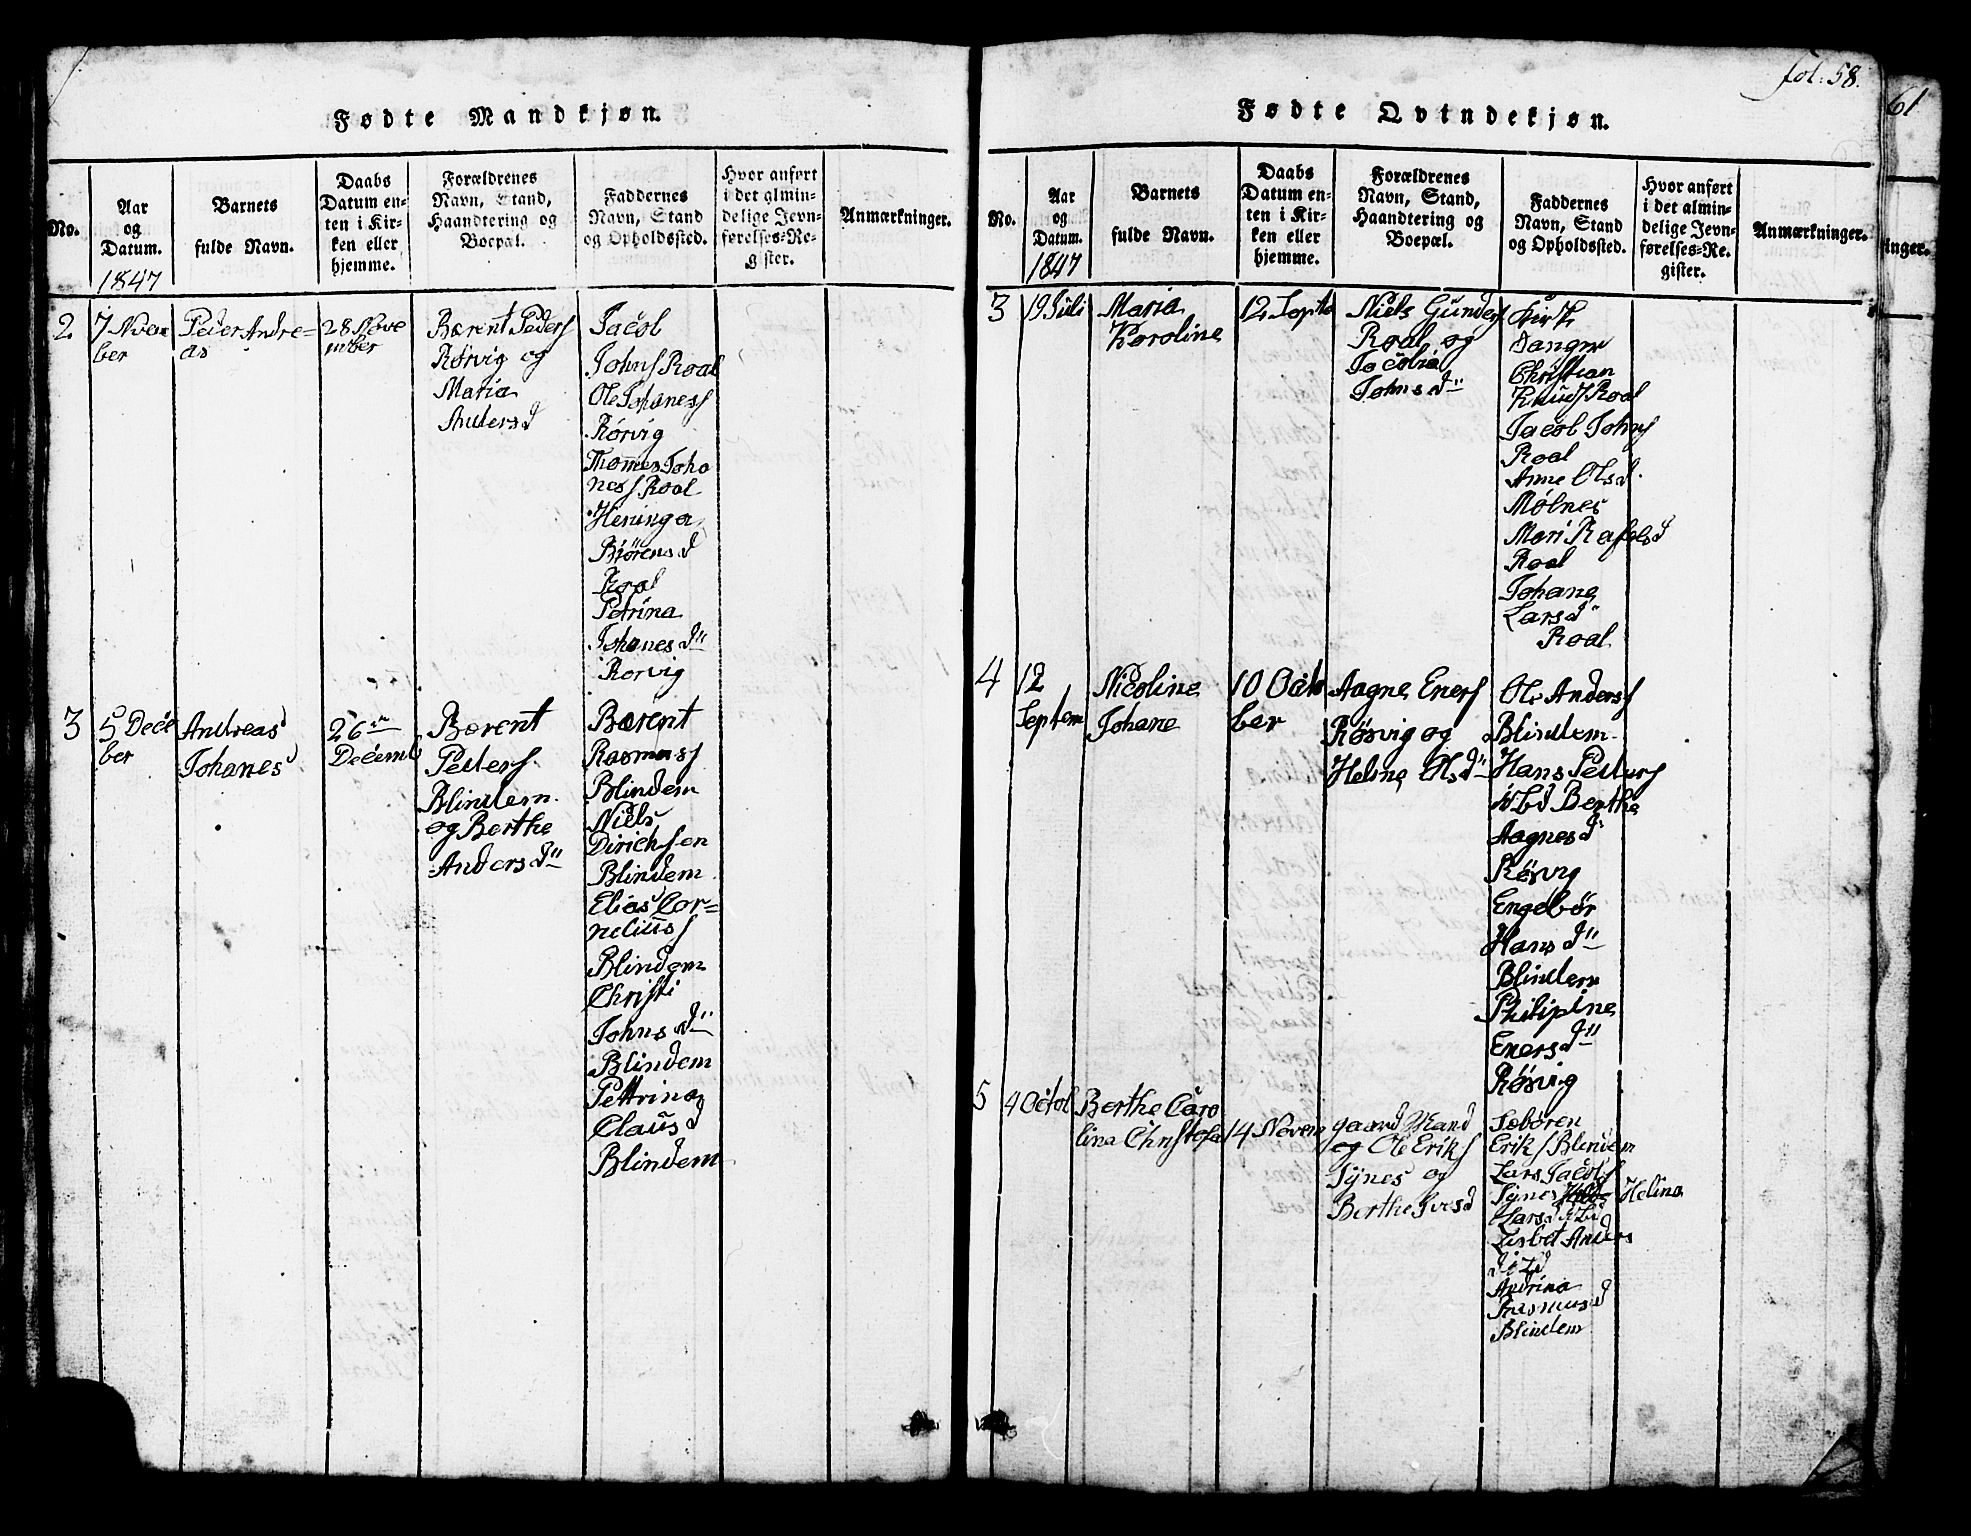 fol: 58.
61
Fødte Mandkjøn.
No.
Aar
og
Datum.
1847
Barnets
fulde Navn.
Daabs
Datum en-
ten i Kir-
ken eller
hjemme.
Forældrenes
Navn, Stand,
Haandtering og
Boepæl.
Faddernes
Navn, Stand
og Opholdssted.
Hvor anført
i det almin-
delige Jevn-
førelses-Re-
gister.
Anmærkninger.
2
7 Nvem
ber
Peder Andre=
as
28 Nove
mber
Bærent Peders
Rørvig og
Maria
Andersd
Jacob
Johns Roal
Ole Johaness
Rørvig
Thomes Joha
ness Roal
Heninga
Biörensd
Roal
Petrina
Johanesd
Rorvig
3
5 Dece
ber
Andreas
Johanes
26
Decemb
Bærent
Peders
Blindem
og Berthe
Andersd
Bærent
Rasmuss
Blindem
Niels
Dirichsen
Blindem
Elias Cor=
neliuss
Blindem
Christi
Johnsd
Blindem
Pettrina
Clausd
Blindem
Fødte Qvindekjøn.
No.
Aar
og
Datum.
1847
Barnets
fulde Navn.
Daabs
Datum en-
ten i Kir-
ken eller
hjemme.
Forældrenes
Navn, Stand,
Haandtering og
Boepæl.
Faddernes
Navn, Stand
og Opholdssted.
Hvor anført
i det almin-
delige Jevn-
førelses-Re-
gister.
Anmærkninger.
inger.
3
19 Juli
Maria
Karoline
12 Septe
Niels Gunders
Roal og
Jacobia
Johnsd
Kirke
Sanger
Christian
Knuds Roal
Jacob Johns
Roal
Anne Olsd.
Mølnes
Mari Rafelsd
Roal
Johane
Larsd
Roal
4
12
Septem
Nicoline
Johane
10 Octo
ber
Aagne Eners
Røsvig og
Heline Olsd
Ole Anders
Blindem
Hans Peders
Berthe
Aagnesd
Røsvig
Engebør
Hansd
Blindem
Philipine
Enersd
Røsvig
5
4 Octob
Berthe Caro
lina Christofa
14 Novem
gaard Mand
og Ole Eriks
Synes og
Berthe Ivesd
Sebören
Eriks Blindem
Lars Jacobs
Synes Helina
Larsd
Lisbet Anders
d
Andrina
Rasmusd
Blindem